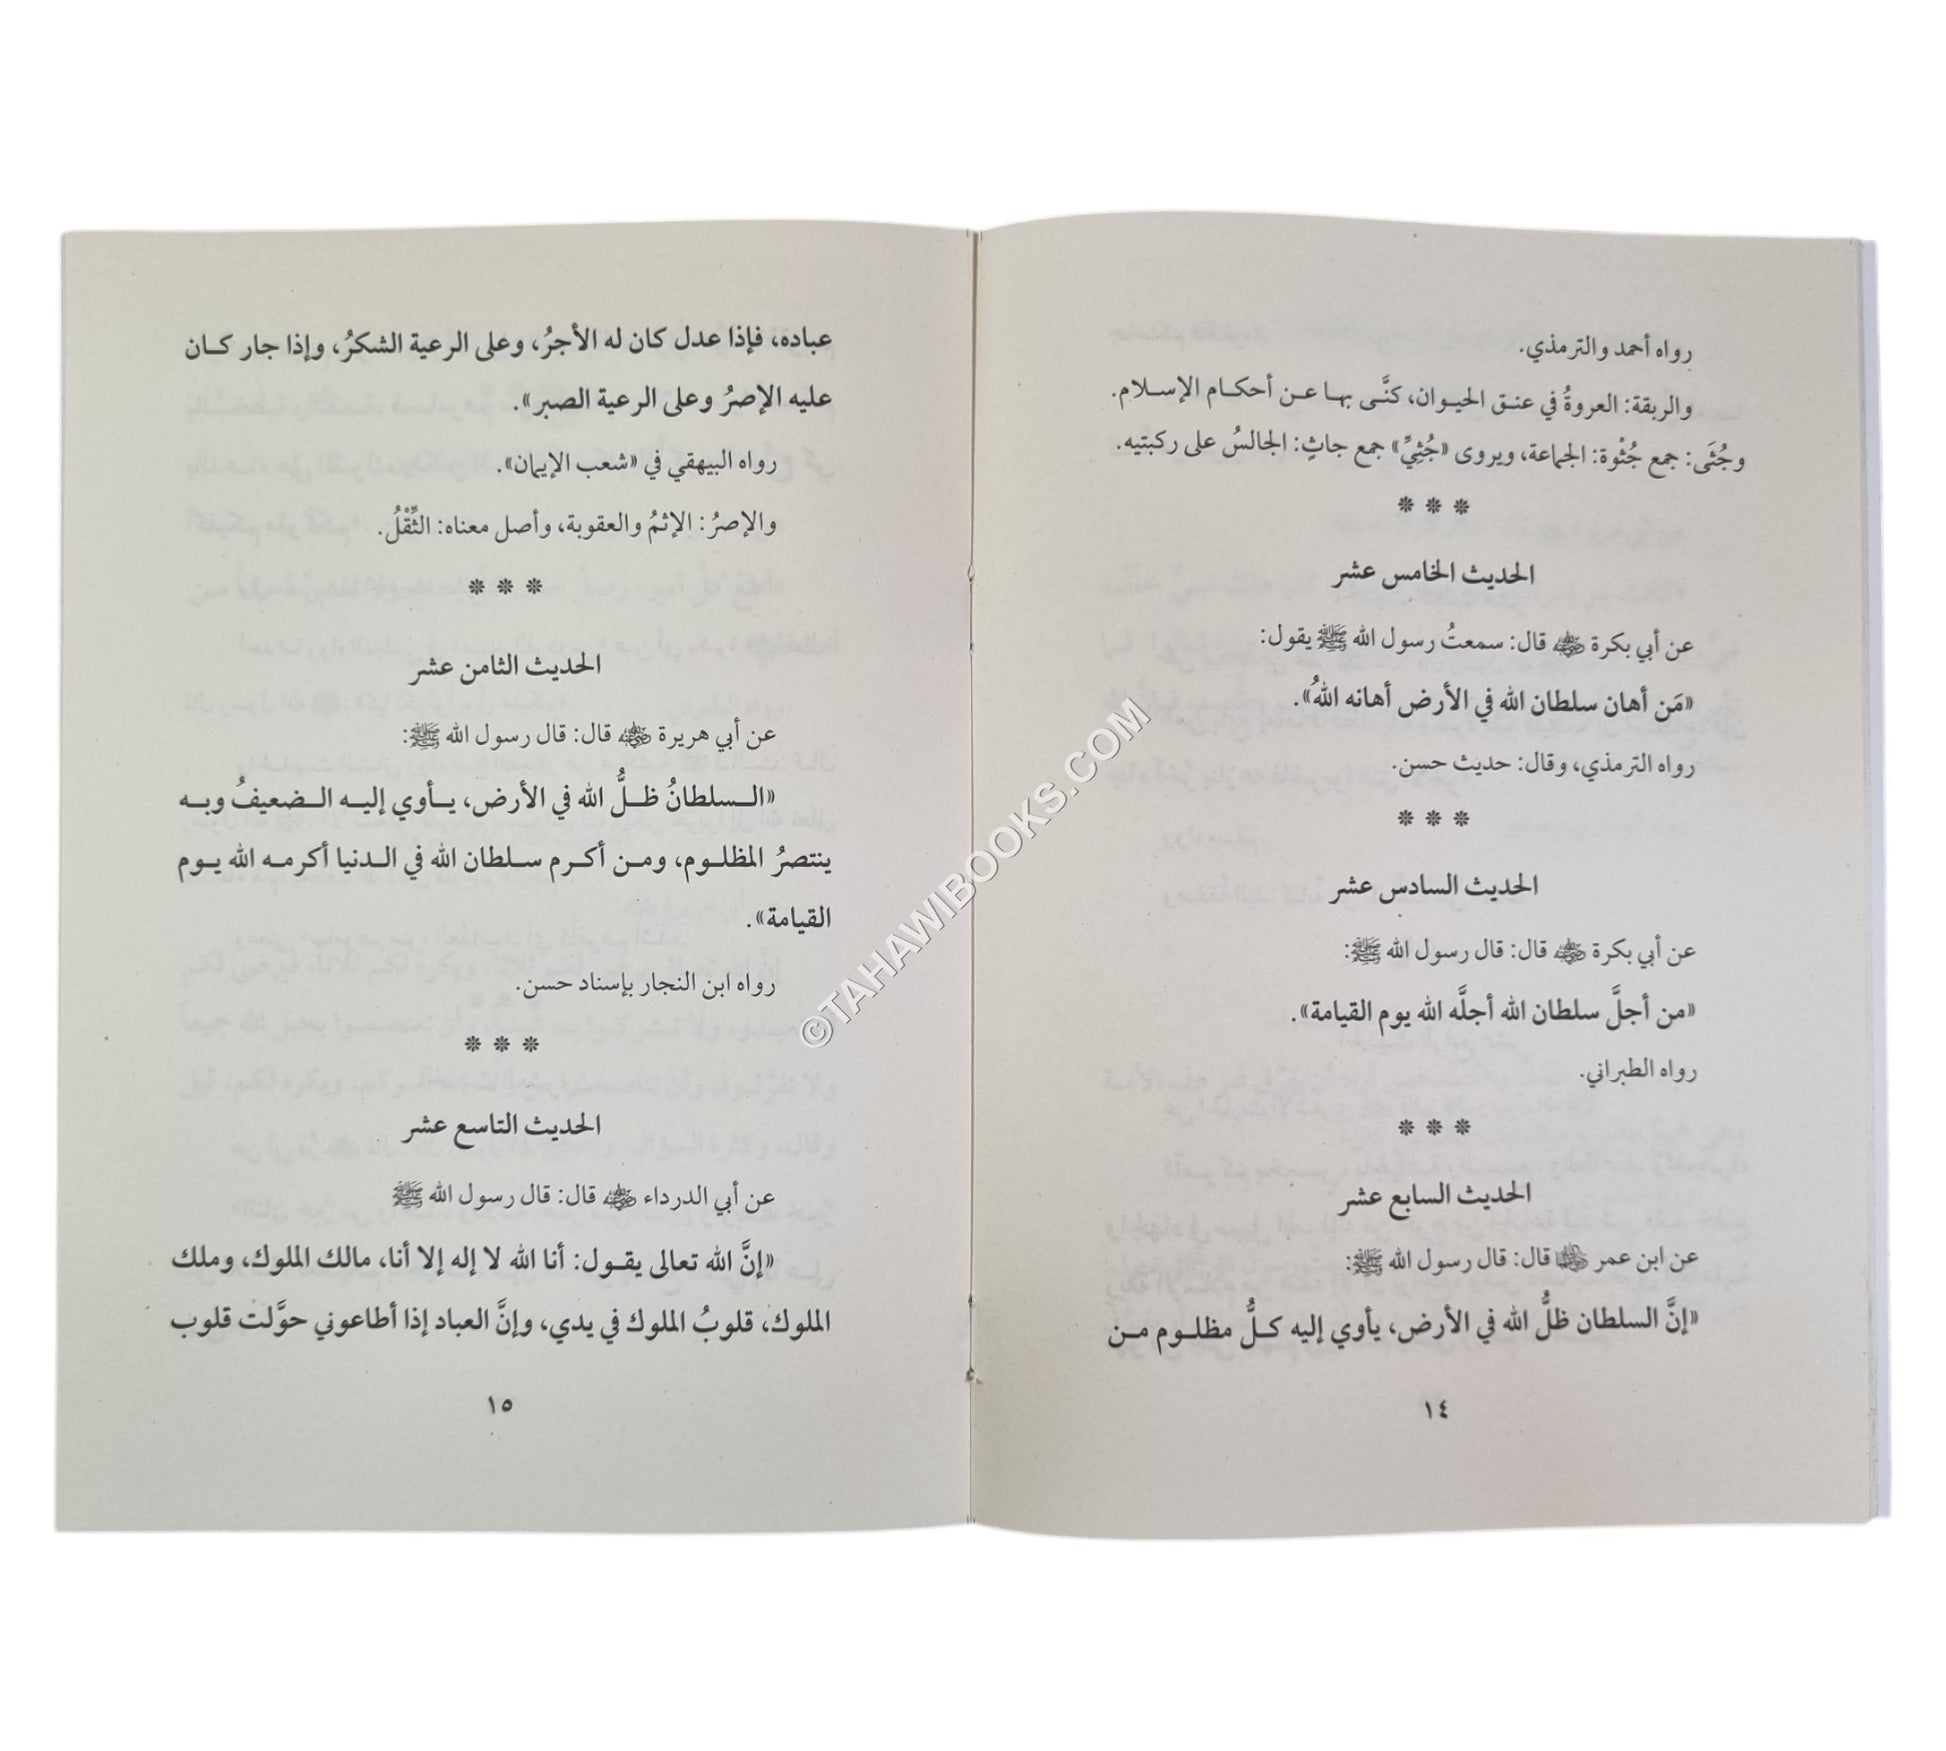 رواه أحمد والترمذي.
والربقة: العروةُ في عنق الحيوان، كنَّى بها عن أحكام الإسلام.
وجُثَى: جمع جُثْوة: الجماعة، ويروى «جُثِيِّ» جمع جاثٍ: الجالسُ على ركبتيه.
❊ ❊ ❊
الحديث الخامس عشر
عن أبي بكرة رضي الله عنه قال: سمعتُ رسول الله ﷺ يقول:
«مَن أهان سلطان الله في الأرض أهانه اللهُ».
رواه الترمذي، وقال: حديث حسن.
❊ ❊ ❊
الحديث السادس عشر
عن أبي بكرة رضي الله عنه قال: قال رسول الله ﷺ:
«من أجلَّ سلطان الله أجلَّه الله يوم القيامة».
رواه الطبراني.
❊ ❊ ❊
الحديث السابع عشر
عن ابن عمر رضي الله عنهما قال: قال رسول الله ﷺ:
«إنَّ السلطان ظلُّ الله في الأرض، يأوي إليه كلُّ مظلوم من
١٤
عباده، فإذا عدل كان له الأجرُ، وعلى الرعية الشكرُ، وإذا جار كان
عليه الإصرُ وعلى الرعية الصبر».
رواه البيهقي في «شعب الإيمان».
والإصرُ: الإثمُ والعقوبة، وأصل معناه: الثِّقْلُ.
❊ ❊ ❊
الحديث الثامن عشر
عن أبي هريرة رضي الله عنه قال: قال رسول الله ﷺ:
«السلطانُ ظلُّ الله في الأرض، يأوي إليه الضعيفُ وبه
ينتصرُ المظلوم، ومن أكرم سلطان الله في الدنيا أكرمه الله يوم
القيامة».
رواه ابن النجار بإسناد حسن.
❊ ❊ ❊
الحديث التاسع عشر
عن أبي الدرداء رضي الله عنه قال: قال رسول الله ﷺ
«إنَّ الله تعالى يقول: أنا الله لا إله إلا أنا، مالك الملوك، وملك
الملوك، قلوبُ الملوك في يدي، وإنَّ العباد إذا أطاعوني حوَّلت قلوب
١٥
©TAHAWIBOOKS.COM